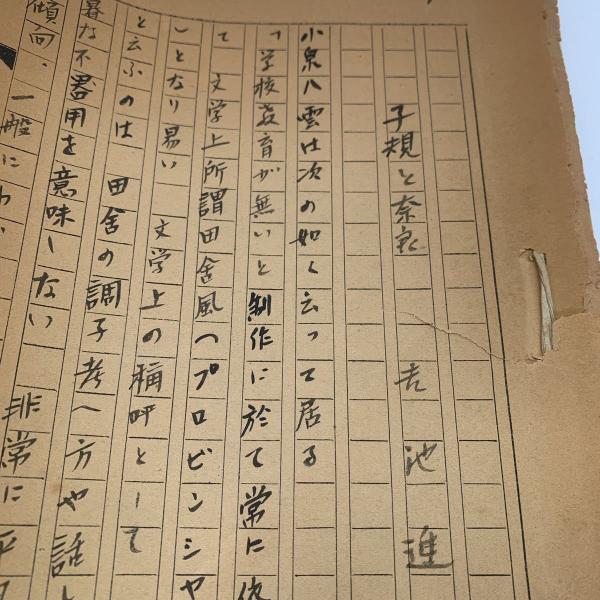 子規と奈良 吉池進
小泉八雲は次の如く云って居る
「学校教育が無いと制作に於て常に
て 文学上所謂田舎風へプロビンシヤ
いとなり易い 文学上の稱呼として
と云ふのは 田舎の調子考へ方や話し
暮な不器用を意味しない 非常に平
傾向、一般に